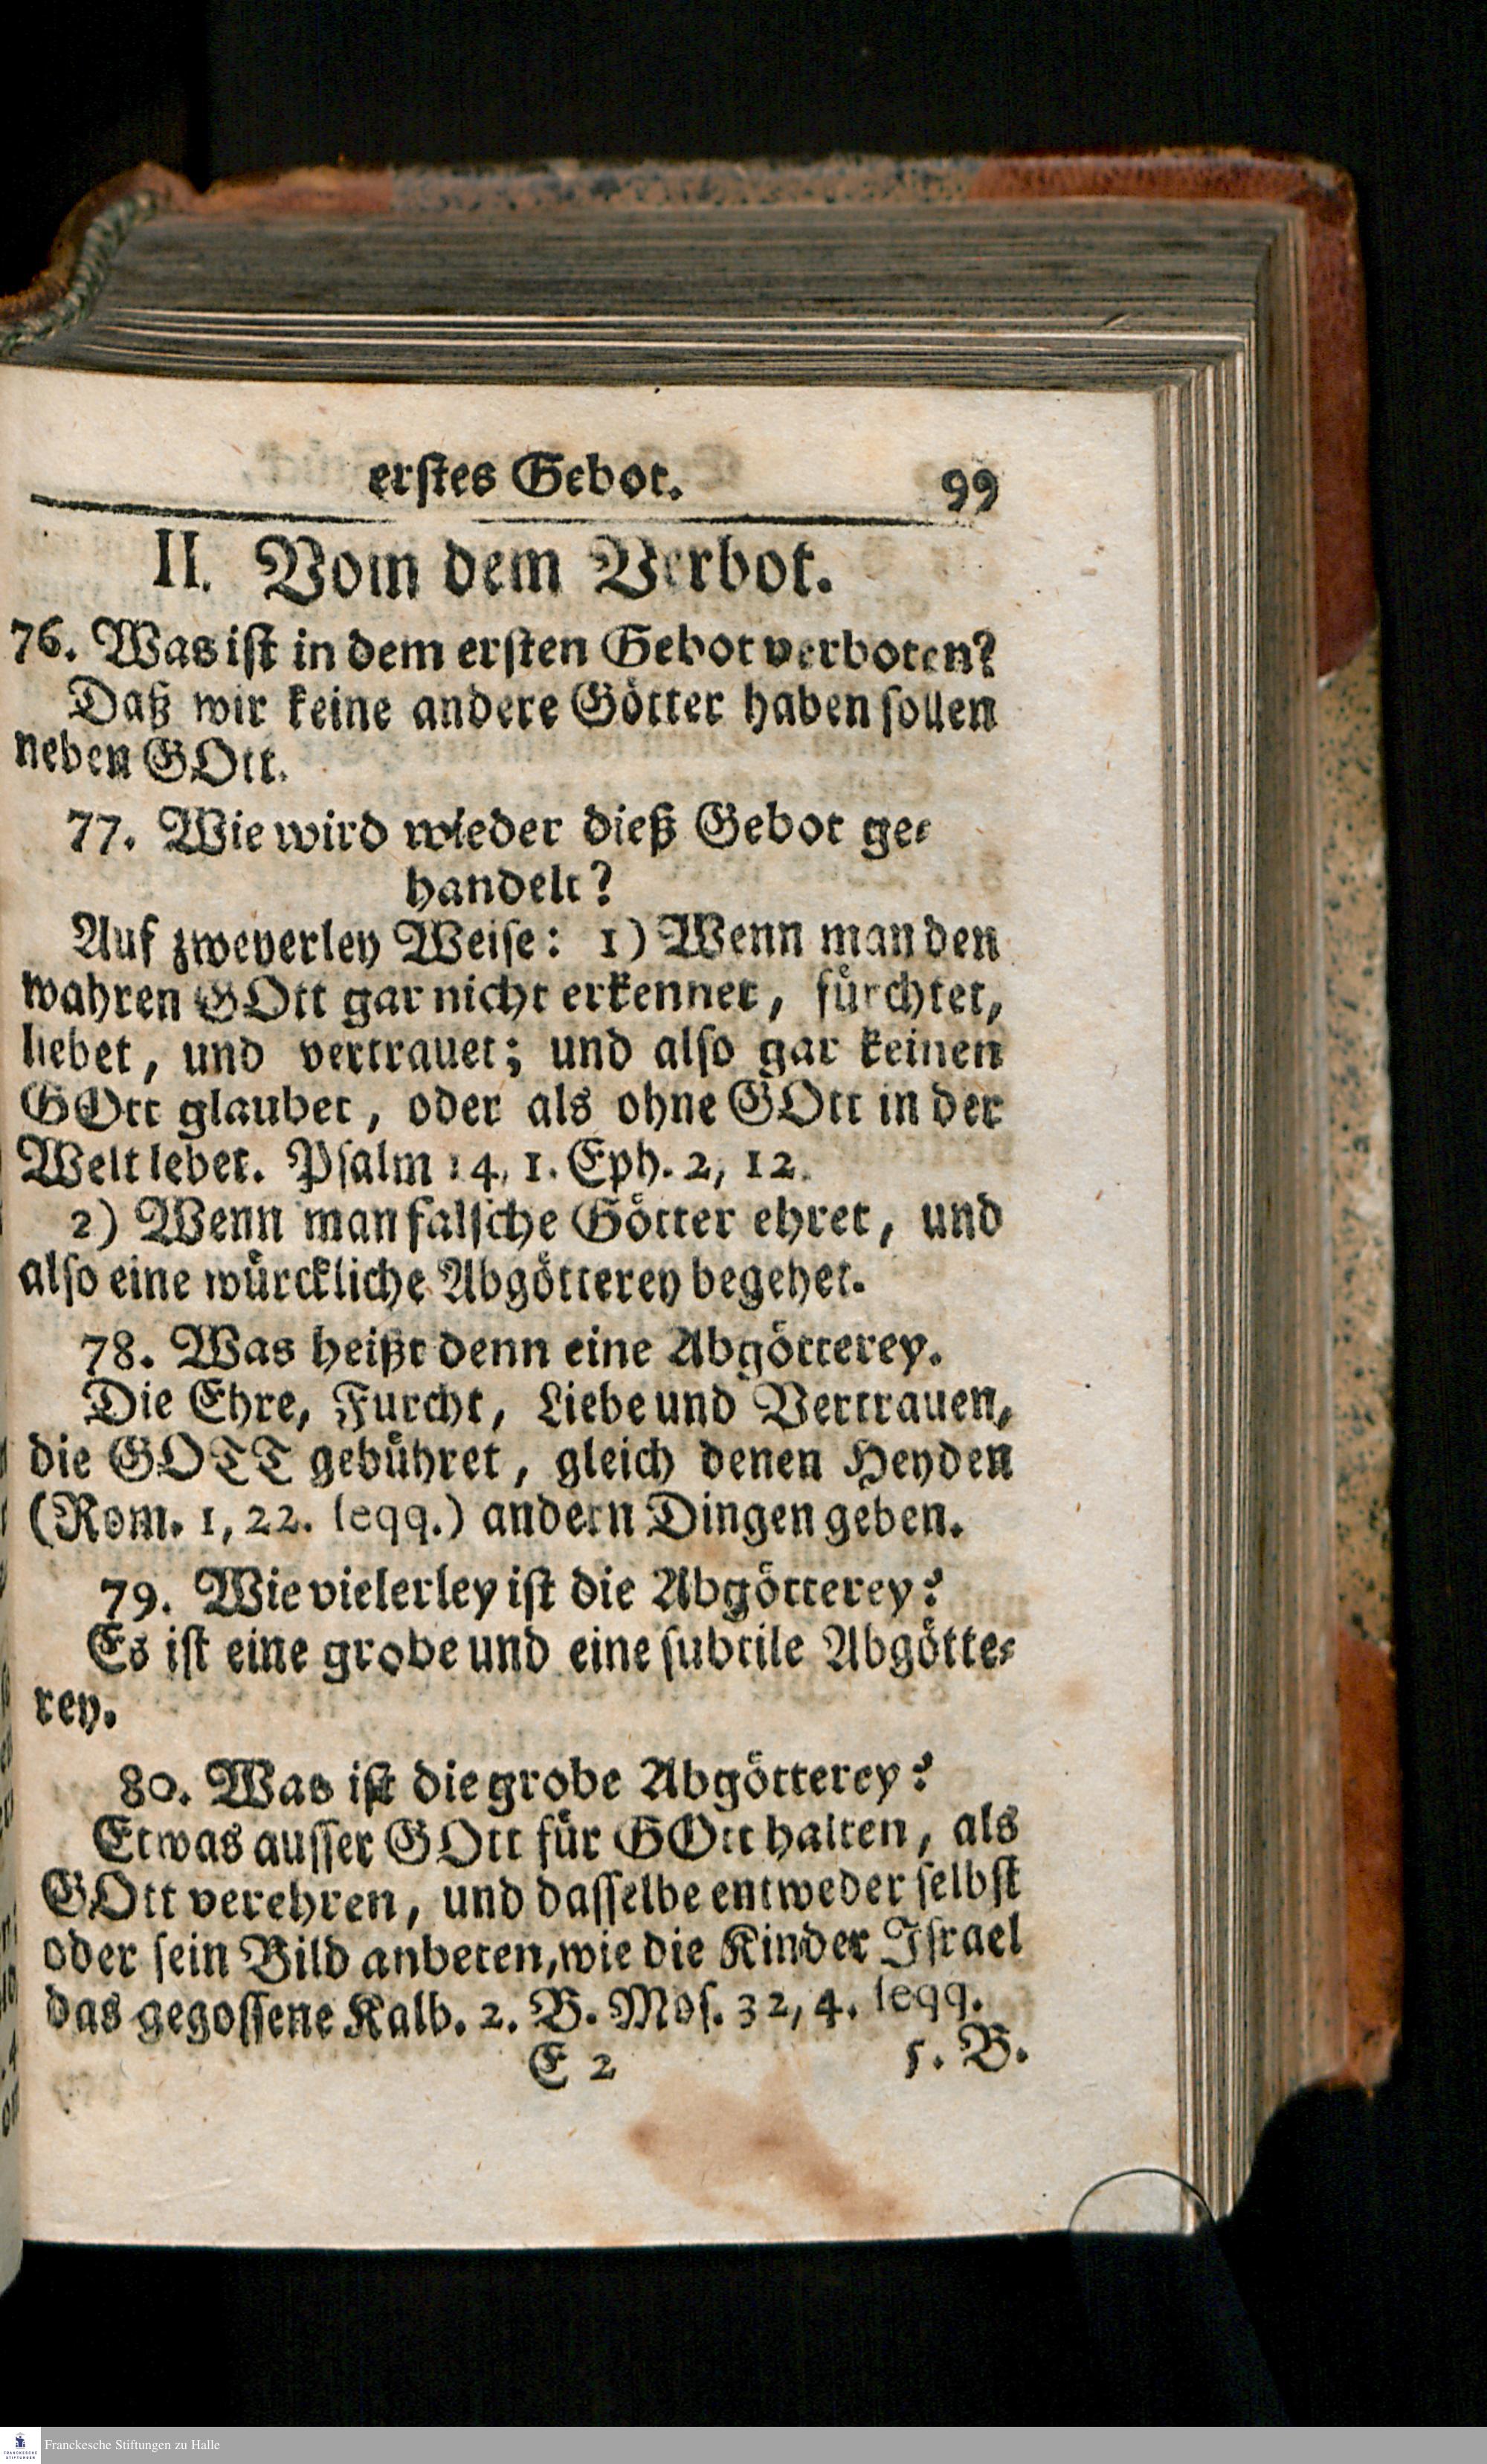 erstes Gebot. 99
II. Vom dem Verbot.
76. Was ist in dem ersten Gebot verboten?
Daß wir keine andere Götter haben sollen
neben GOtt.
77. Wie wird wieder dieß Gebot ge-
handelt?
Auf zweyerley Weise: 1) Wenn man den
wahren GOtt gar nicht erkennet, fürchtet,
liebet, und vertrauet; und also gar keinen
GOtt glaubet, oder als ohne GOtt in der
Welt lebet. Psalm 14, 1. Eph. 2, 12.
2) Wenn man falsche Götter ehret, und
also eine würckliche Abgötterey begehet.
78. Was heißt denn eine Abgötterey.
Die Ehre, Furcht, Liebe und Vertrauen,
die GOTT gebühret, gleich denen Heyden
(Rom. 1, 22. seqq.) andern Dingen geben.
79. Wie vielerley ist die Abgötterey?
Es ist eine grobe und eine subtile Abgötte-
rey.
80. Was ist die grobe Abgötterey?
Etwas ausser GOtt für GOtt halten, als
GOtt verehren, und dasselbe entweder selbst
oder sein Bild anbeten, wie die Kinder Israel
das gegossene Kalb. 2. B. Mos. 32, 4. seqq.
E 2 5. B.
Franckesche Stiftungen zu Halle